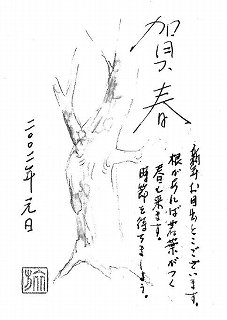 賀春
新年お目出とうございます。
根があれば若葉がつく
春も来ます。
時節を待ちましょう。
二〇〇二年 元日